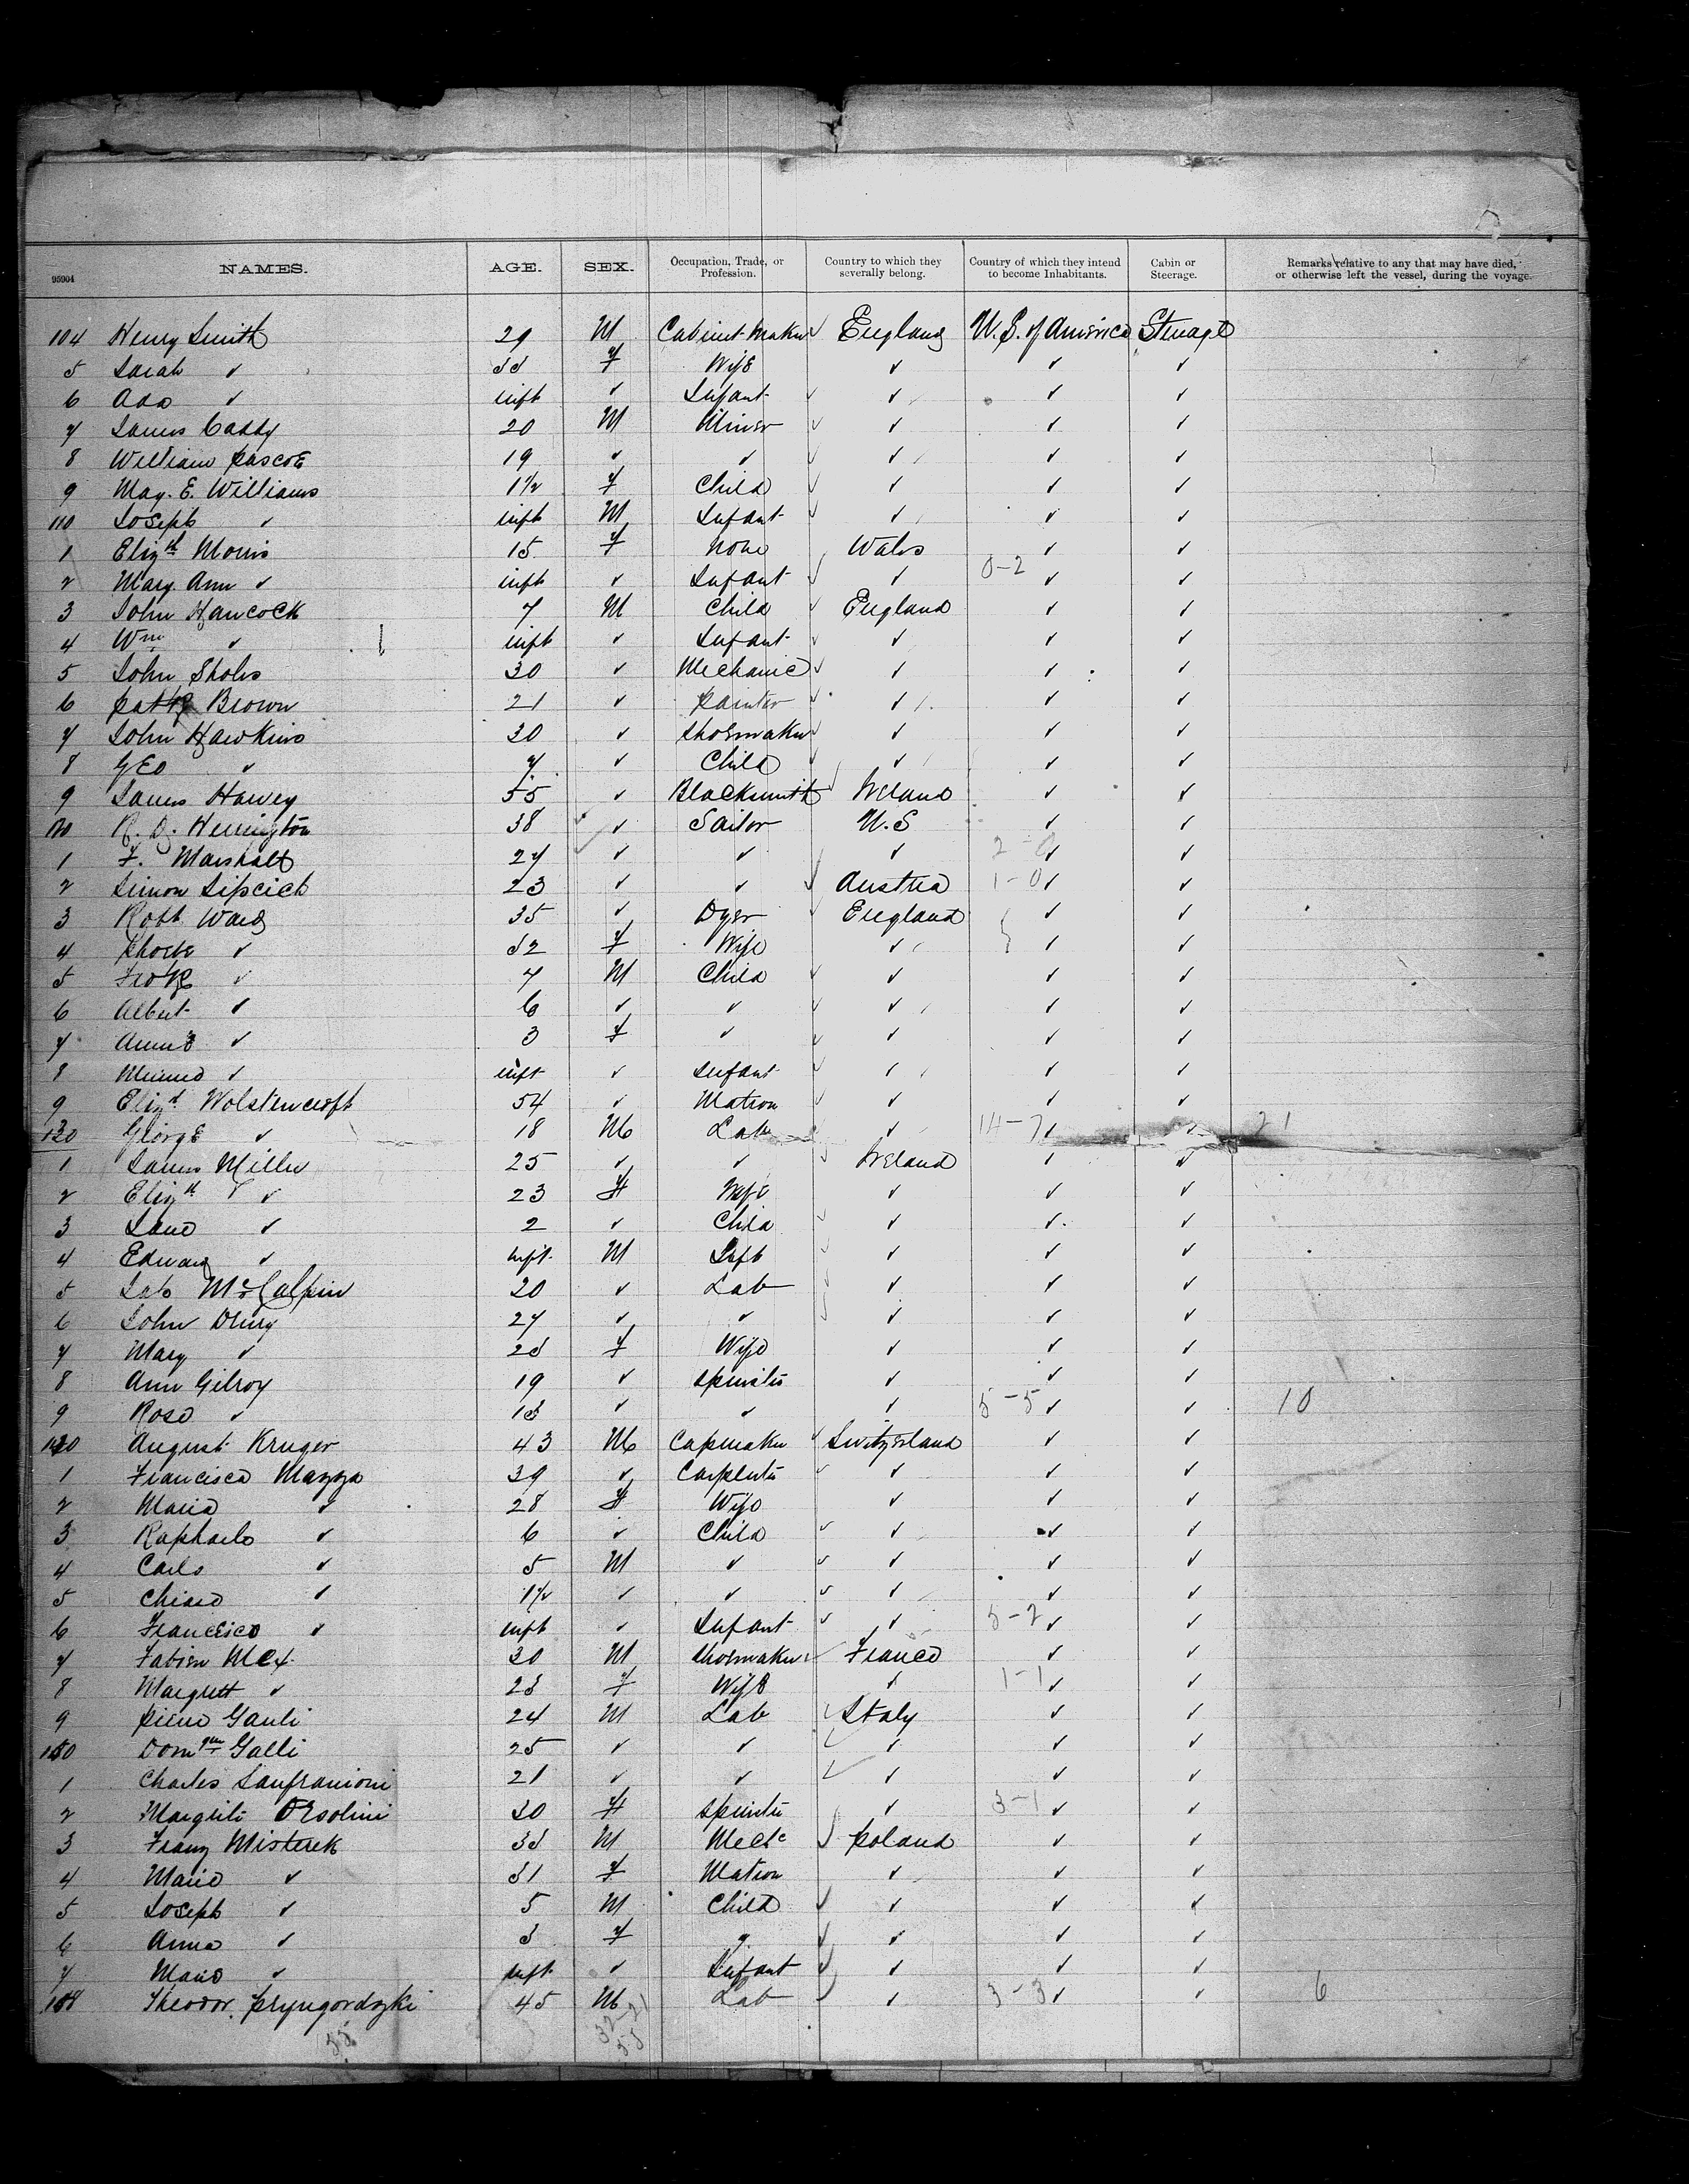 95904 NAMES. AGE. SEX. Occupation, Trade, or Profession. Country to which they severally belong. Country of which they intend to become Inhabitants. Cabin or Steerage. Remarks relative to any that may have died, or otherwise left the vessel, during the voyage.
104 Henry Smith 29 M Cabinet Maker ✓ England U.S. of America Steerage
5 Sarah ✓ 33 F Wife ✓ ✓ ✓
6 Ada ✓ inft ✓ Infant ✓ ✓ ✓ ✓
7 James Caddy 20 M Miner ✓ ✓ ✓ ✓
8 William Pascoe 19 ✓ ✓ ✓ ✓ ✓ ✓
9 May. E. Williams 1½ F Child ✓ ✓ ✓ ✓
110 Joseph ✓ inft M Infant ✓ ✓ ✓ ✓
1 Elizth Morris 15 F None Wales ✓ ✓
2 Mary Ann ✓ inft ✓ Infant ✓ ✓ 0-2 ✓ ✓
3 John Hancock 7 M Child ✓ England ✓ ✓
4 Wm ✓ inft ✓ Infant ✓ ✓ ✓ ✓
5 John Sholes 30 ✓ Mechanic ✓ ✓ ✓ ✓
6 Brown 21 ✓ Painter ✓ ✓ ✓ ✓
7 John Hawkins 30 ✓ Shoemaker ✓ ✓ ✓ ✓
8 Geo ✓ 7 ✓ Child ✓ ✓ ✓ ✓
9 James Harvey 55 ✓ Blacksmith ✓ Ireland ✓ ✓
120 R. D. Herrington 38 ✓ Sailor U.S ✓ ✓
1 F. Marshall 27 ✓ ✓ ✓ ✓ 2-0 ✓ ✓
2 Simon Sipcich 23 ✓ ✓ ✓ Austria 1-0 ✓ ✓
3 Robt. Ward 35 ✓ Dyer ✓ England ✓ ✓
4 Phoebe ✓ 32 F Wife ✓ ✓ ✓
5 ✓ 7 M Child ✓ ✓ ✓ ✓
6 Albert ✓ 6 ✓ ✓ ✓ ✓ ✓ ✓
7 Annie ✓ 3 F ✓ ✓ ✓ ✓ ✓
8 Minnie ✓ inft ✓ Infant ✓ ✓ ✓ ✓
9 Elizth Wolstencroft 54 ✓ Matron ✓ ✓ ✓ ✓
130 George ✓ 18 M Lab ✓ 14-7 ✓ ✓ 21
1 James Miller 25 ✓ ✓ ✓ Ireland ✓ ✓
2 Elizth ✓ 23 F Wife ✓ ✓ ✓
3 Jane ✓ 2 ✓ Child ✓ ✓ ✓ ✓
4 Edward ✓ inft. M Inft ✓ ✓ ✓ ✓
5 Jas McCalpin 20 ✓ Lab ✓ ✓ ✓ ✓
6 John Drury 27 ✓ ✓ ✓ ✓ ✓ ✓
7 Mary ✓ 23 F Wife ✓ ✓ ✓
8 Ann Gilroy 19 ✓ Spinster ✓ ✓ ✓
9 Rose ✓ 13 ✓ ✓ ✓ 5-5 ✓ ✓ 10
140 August Kruger 43 M Capmaker ✓ Switzerland ✓ ✓
1 Francisca Mazza 39 ✓ Carpenter ✓ ✓ ✓ ✓
2 Maria ✓ 28 F Wife ✓ ✓ ✓
3 Raphaele ✓ 6 ✓ Child ✓ ✓ ✓ ✓
4 Carlo ✓ 5 M ✓ ✓ ✓ ✓ ✓
5 ✓ 1½ ✓ ✓ ✓ ✓ ✓ ✓
6 Francesco ✓ inft ✓ Infant ✓ ✓ 5-2 ✓ ✓
7 Fabien Mex 30 M Shoemaker ✓ France ✓ ✓
8 Margrett ✓ 23 F Wife ✓ 1-1 ✓ ✓
9 Gauli 24 M Lab ✓ Italy ✓ ✓
150 Galli 25 ✓ ✓ ✓ ✓ ✓ ✓
1 Charles Lanfranioni 21 ✓ ✓ ✓ ✓ ✓ ✓
2 Orsolini 30 F Spinster ✓ 3-1 ✓ ✓
3 Franz Misterek 33 M Mechc ✓ Poland ✓ ✓
4 Marie ✓ 31 F Matron ✓ ✓ ✓
5 Joseph ✓ 5 M Child ✓ ✓ ✓ ✓
6 Anna ✓ 3 F ✓ ✓ ✓ ✓
7 Marie ✓ inft. ✓ Infant ✓ ✓ ✓ ✓
158 Theodor Pryngordzki 45 M Lab ✓ ✓ 3-3 ✓ ✓ 6
32-21